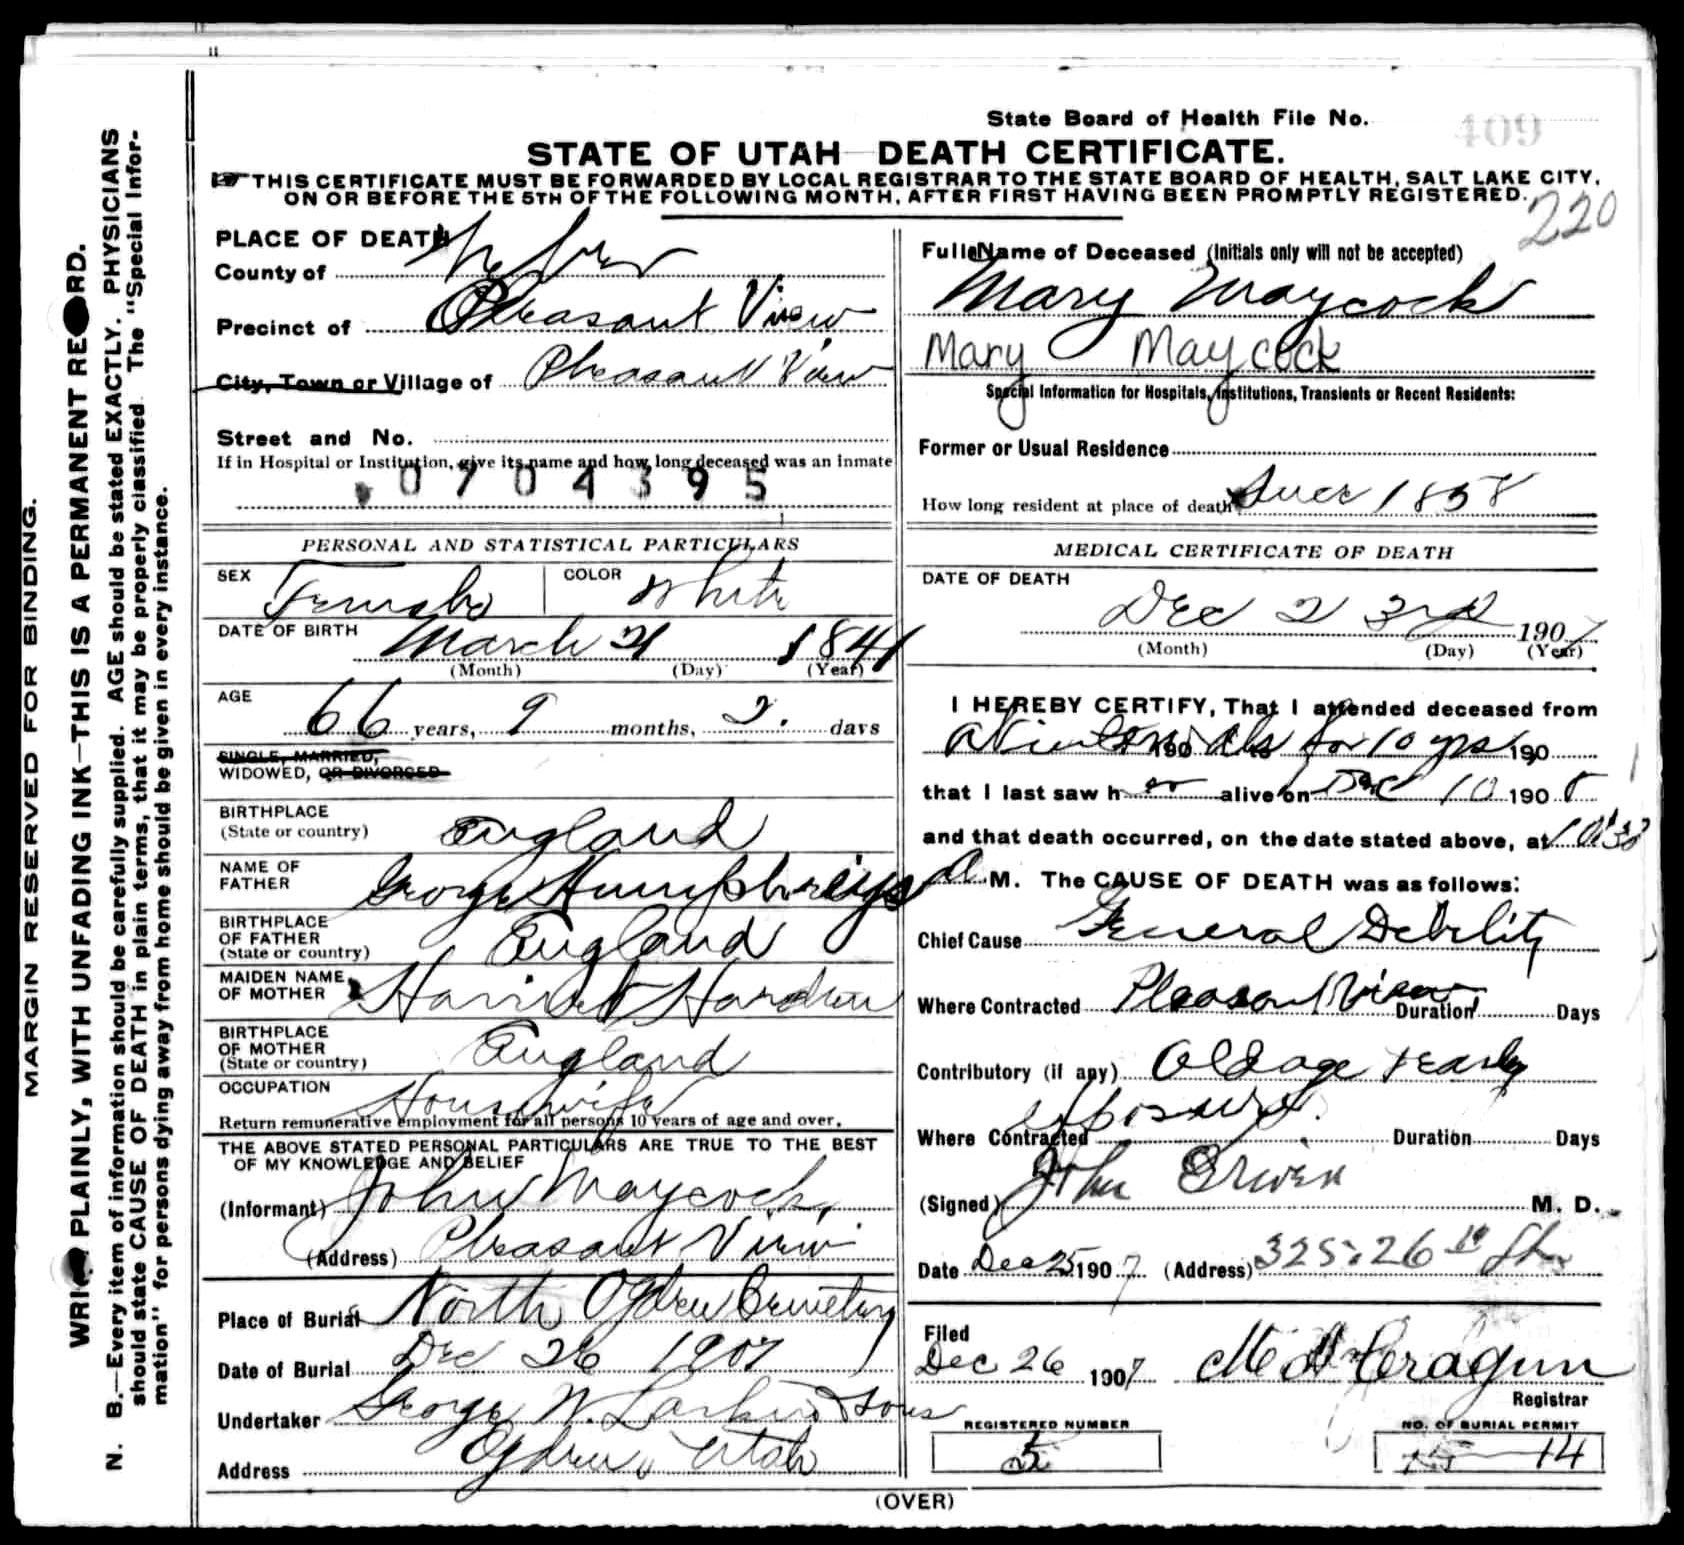 State Board of Health File No. 409
STATE OF UTAH—DEATH CERTIFICATE.
THIS CERTIFICATE MUST BE FORWARDED BY LOCAL REGISTRAR TO THE STATE BOARD OF HEALTH, SALT LAKE CITY,
ON OR BEFORE THE 5TH OF THE FOLLOWING MONTH, AFTER FIRST HAVING BEEN PROMPTLY REGISTERED.
220
MARGIN RESERVED FOR BINDING.
PLAINLY, WITH UNFADING INK—THIS IS A PERMANENT
N. B.—Every item of information should be carefully supplied. AGE should be stated EXACTLY. PHYSICIANS
should state CAUSE OF DEATH in plain terms, that it may be properly classified. The "Special Infor-
mation" for persons dying away from home should be given in every instance.
PLACE OF DEATH
County of Weber
Precinct of Pleasant View
City, Town or Village of Pleasant View
Street and No.
If in Hospital or Institution, give its name and how long deceased was an inmate
0704395
PERSONAL AND STATISTICAL PARTICULARS
SEX Female COLOR White
DATE OF BIRTH March 21 1841
(Month) (Day) (Year)
AGE
66 years, 9 months, 2. days
SINGLE, MARRIED,
WIDOWED, OR DIVORCED
BIRTHPLACE
(State or country) England
NAME OF
FATHER George Humphreys
BIRTHPLACE
OF FATHER
(State or country) England
MAIDEN NAME
OF MOTHER Harriet Harden
BIRTHPLACE
OF MOTHER
(State or country) England
OCCUPATION Housewife
Return remunerative employment for all persons 10 years of age and over.
THE ABOVE STATED PERSONAL PARTICULARS ARE TRUE TO THE BEST
OF MY KNOWLEDGE AND BELIEF
(Informant) John Maycock,
(Address) Pleasant View
Place of Burial North Ogden Cemetery
Date of Burial Dec 26 1907
Undertaker George W. Larkin & Sons
Address Ogden, Utah
Full Name of Deceased (Initials only will not be accepted)
Mary Maycock
Mary Maycock
Special Information for Hospitals, Institutions, Transients or Recent Residents:
Former or Usual Residence
How long resident at place of death Since 1858
MEDICAL CERTIFICATE OF DEATH
DATE OF DEATH
Dec 23rd 1907
(Month) (Day) (Year)
I HEREBY CERTIFY, That I attended deceased from
190 for 10 yrs 190
that I last saw her alive on Dec 10 190
and that death occurred, on the date stated above, at 10:30
a M. The CAUSE OF DEATH was as follows:
Chief Cause General Debility
Where Contracted Pleasant View Duration Days
Contributory (if any) Old age & early
exposure.
Where Contracted Duration Days
(Signed) John M. D.
Date Dec 25 1907 (Address) 325: 26th St
Filed
Dec 26 1907 Cragun
Registrar
REGISTERED NUMBER
5
NO. OF BURIAL PERMIT
14
(OVER)